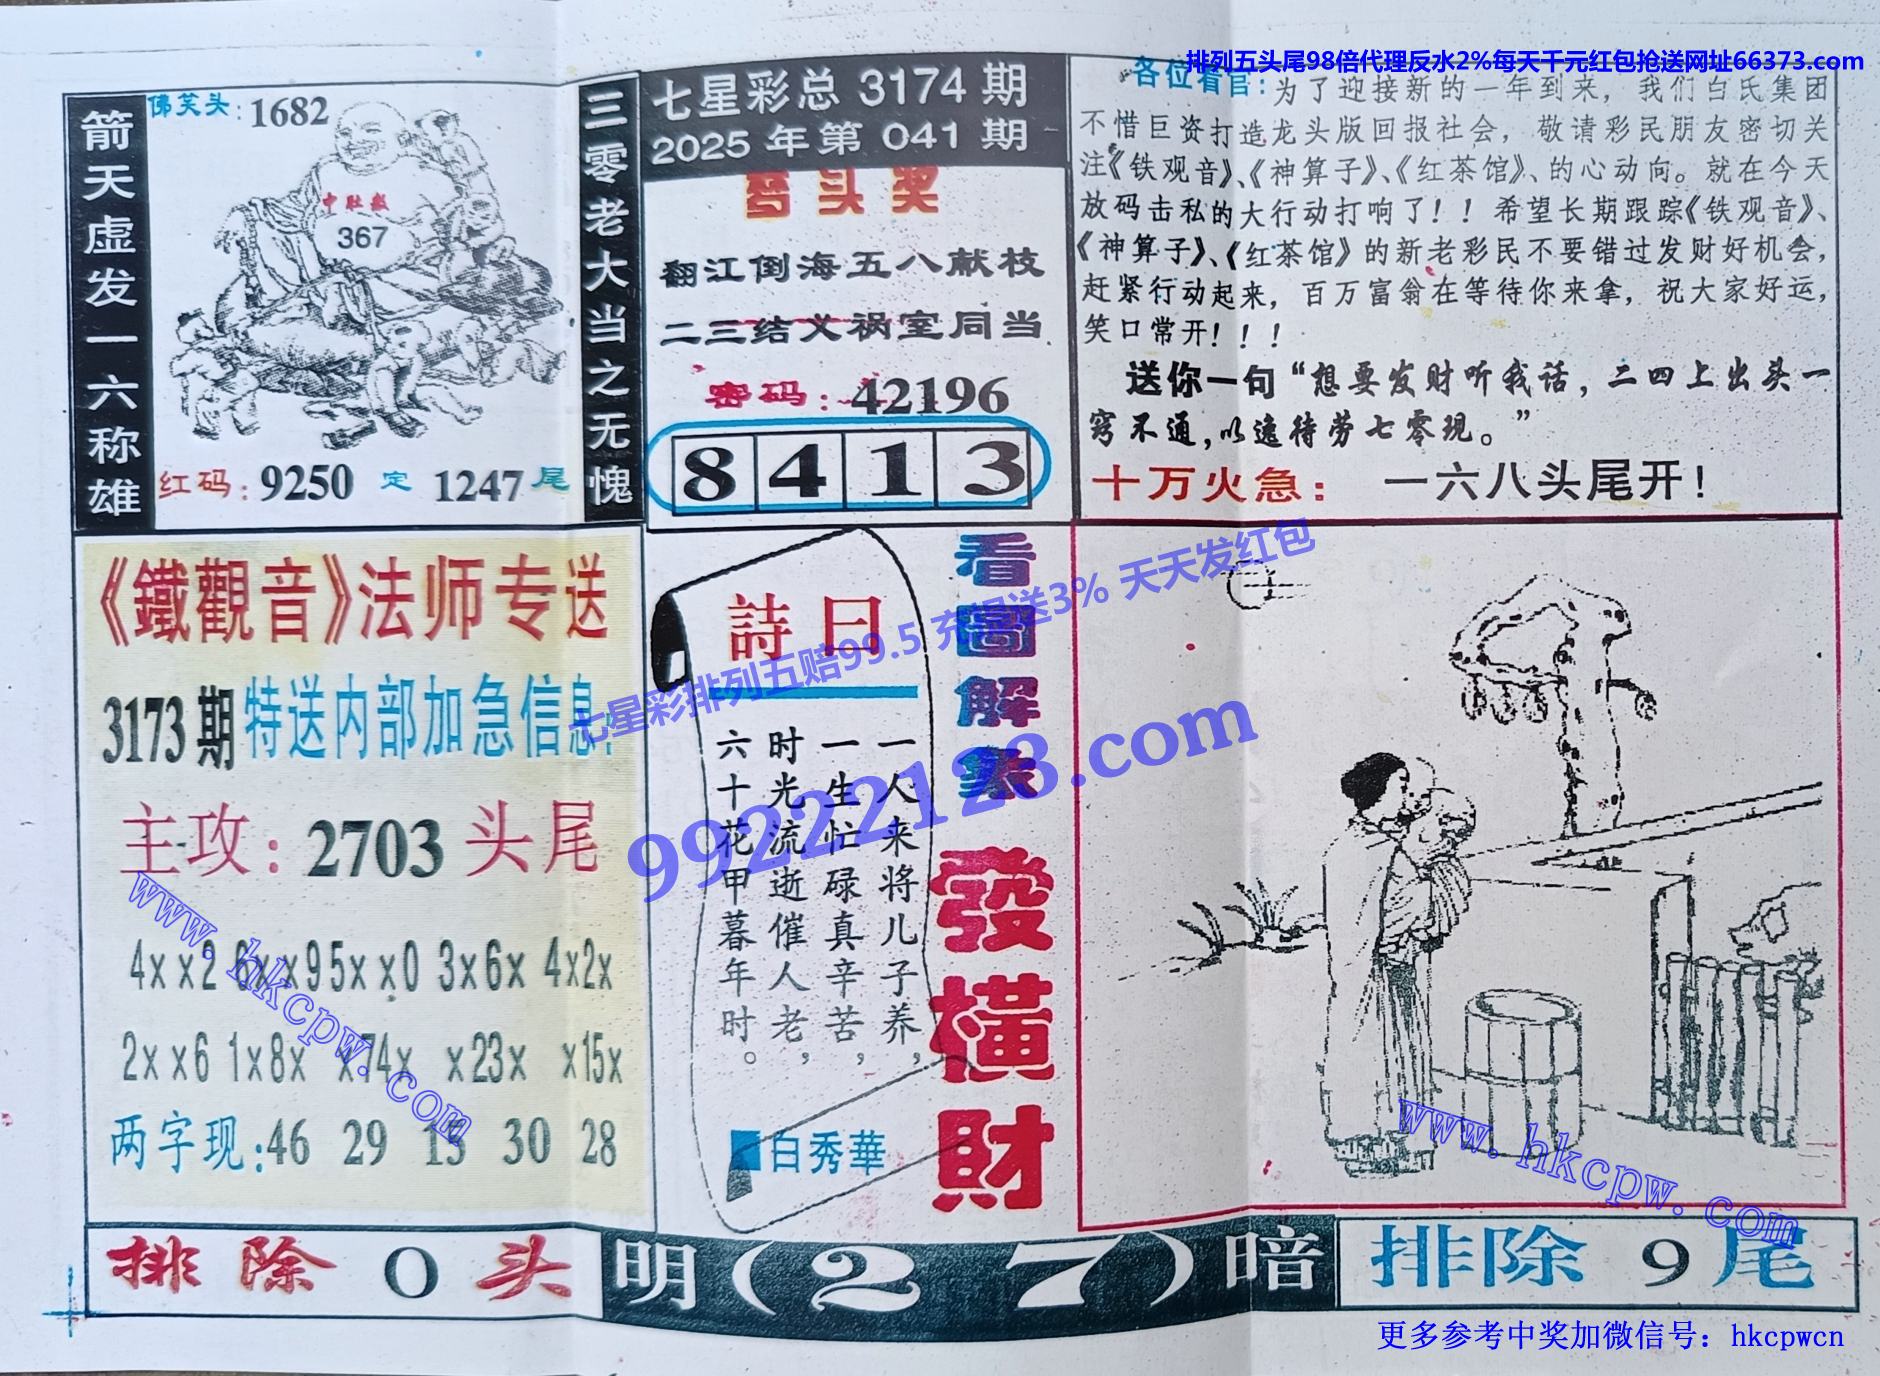 排列五头尾98倍代理反水2%每天千元红包抢送网址66373.com
箭天虚发一六称雄
佛笑头:1682
中肚数
367
红码:9250 定 1247尾
三零老大当之无愧
七星彩总 3174 期
2025 年第 041 期
梦头奖
翻江倒海五八献枝
二三结义祸室同当
密码:42196
8 4 1 3
各位看官:
为了迎接新的一年到来，我们白氏集团
不惜巨资打造龙头版回报社会，敬请彩民朋友密切关
注《铁观音》、《神算子》、《红茶馆》、的心动向。就在今天
放码击私的大行动打响了！！希望长期跟踪《铁观音》、
《神算子》、《红茶馆》的新老彩民不要错过发财好机会，
赶紧行动起来，百万富翁在等待你来拿，祝大家好运，
笑口常开！！！
送你一句“想要发财听我话，二四上出头一
窍不通，以逸待劳七零现。”
十万火急: 一六八头尾开！
《鐵觀音》法师专送
3173期特送内部加急信息:
主攻:2703头尾
4xx2 6xx9 5xx0 3x6x 4x2x
2xx6 1x8x x74x x23x x15x
两字现:46 29 13 30 28
詩曰
一人来将儿子养，
一生忙碌真辛苦，
时光流逝催人老，
六十花甲暮年时。
白秀華
看圖解象
發橫財
七星彩排列五赔99.5 充提送3% 天天发红包
99222128.com
www.hkcpw.com
www.hkcpw.com
排除 0 头
明(2 7)暗
排除 9 尾
更多参考中奖加微信号：hkcpwcn